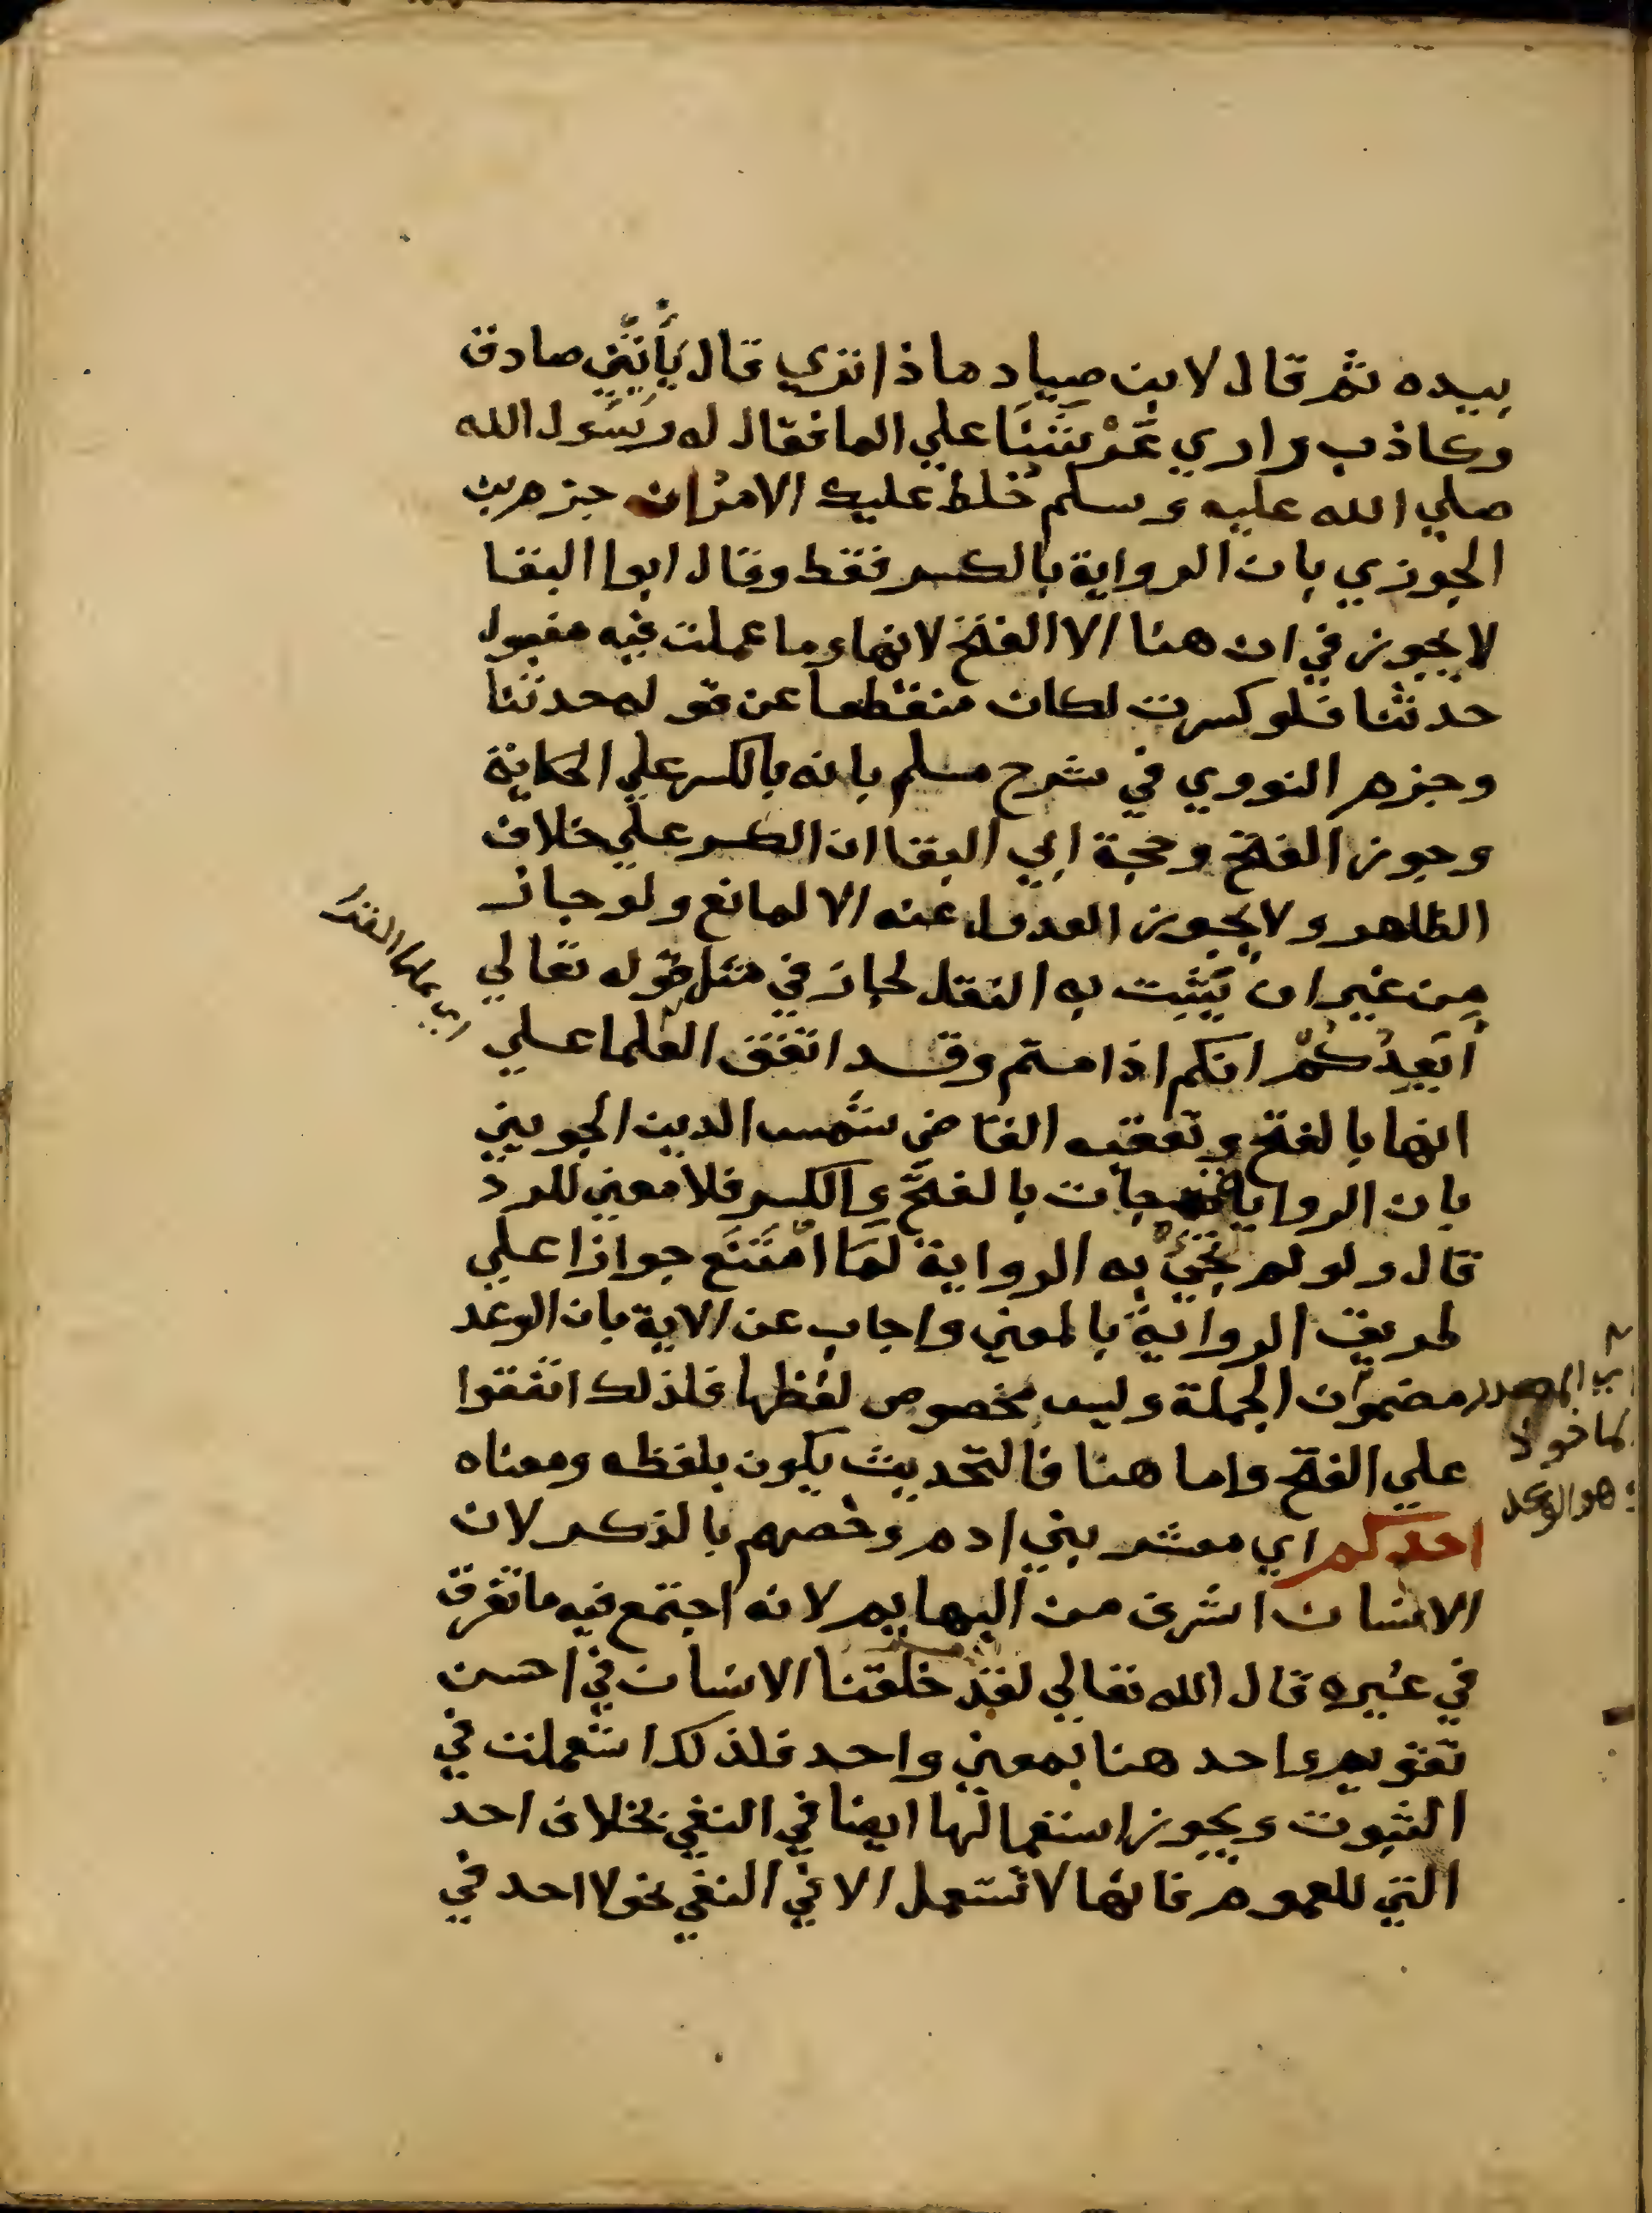 بيده ثم قال لابن صياد ماذا تري قال يأتيني صادق
وكاذب واري عرشا علي الما فقال له رسول الله
صلي الله عليه وسلم خلط عليك الامر ان جزم بن
الجوزي بان الرواية بالكسر فقط وقال ابو البقا
لا يجوز في ان هنا الا الفتح لانها وما عملت فيه مفعول
حدثنا فلو كسرت لكان منقطعا عن قوله حدثنا
وجزم النووي في شرح مسلم بانه بالكسر علي الحكاية
وجوز الفتح وحجة ابي البقا ان الكسر علي خلاف
الظاهر ولا يجوز العدول عنه الا لمانع ولو جاز
من غير ان يثبت به النقل لجاز في مثل قوله تعالي
أيعدكم انكم اذا متم وقد اتفق العلما علي
اي علما القراء
انها بالفتح وتعقبه القاضي شمس الدين الجويني
بان الرواية جات بالفتح والكسر فلا معني للرد
قال ولو لم تجئ به الرواية لما امتنع جوازا علي
طريق الرواية بالمعني واجاب عن الاية بان الوعد
مضمون الجملة وليس بخصوص لفظها فلذلك اتفقوا
اي المصدر
هو الوعد
علي الفتح واما هنا فالتحديث يكون بلفظه ومعناه
احدكم اي معشر بني ادم وخصهم بالذكر لان
الانسان اشرف من البهايم لانه اجتمع فيه ما تفرق
في غيره قال الله تعالي لقد خلقنا الانسان في احسن
تقويم واحد هنا بمعني واحد فلذلك استعملت في
الثبوت ويجوز استعمالها ايضا في النفي بخلاف احد
التي للعموم فانها لا تستعمل الا في النفي نحو لا احد في